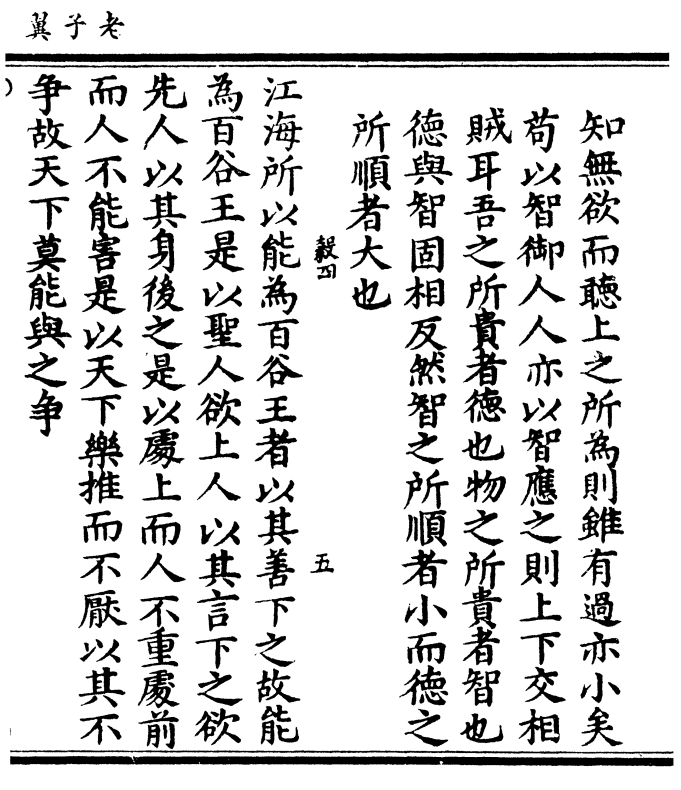 老子翼
知無欲而聽上之所為則雖有過亦小矣
苟以智御人人亦以智應之則上下交相
賊耳吾之所貴者德也物之所貴者智也
德與智固相反然智之所順者小而德之
所順者大也
五
江海所以能為百谷王者以其善下之故能
為百谷王是以聖人欲上人以其言下之欲
先人以其身後之是以處上而人不重處前
而人不能害是以天下樂推而不厭以其不
争故天下莫能與之争